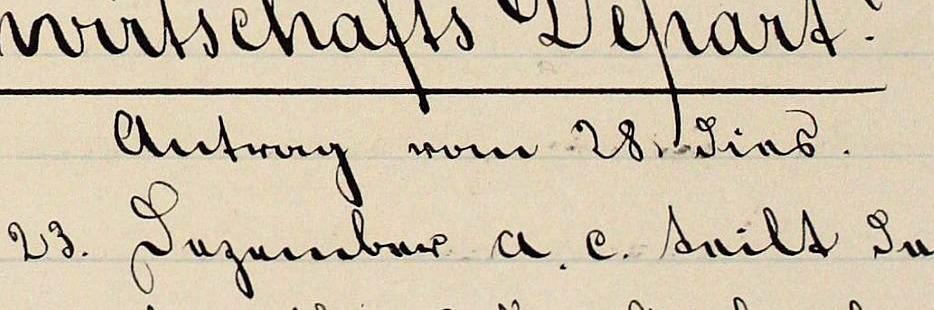 wirtschafts Depart.
Antrag vom 28. Dies.
23. Dezember a. c. teilt